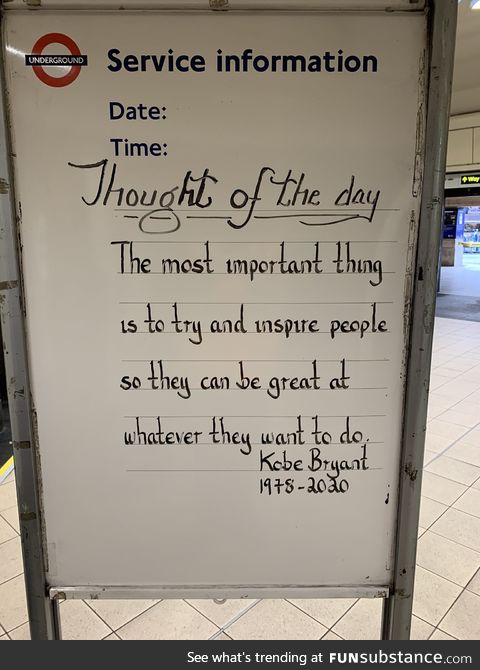 UNDERGROUND
Service information
Date:
Time:
Thought of the day
The most important thing
is to try and inspire people
so they can be great at
whatever they want to do.
Kobe Bryant
1978-2020
Way
See what's trending at FUNsubstance.com